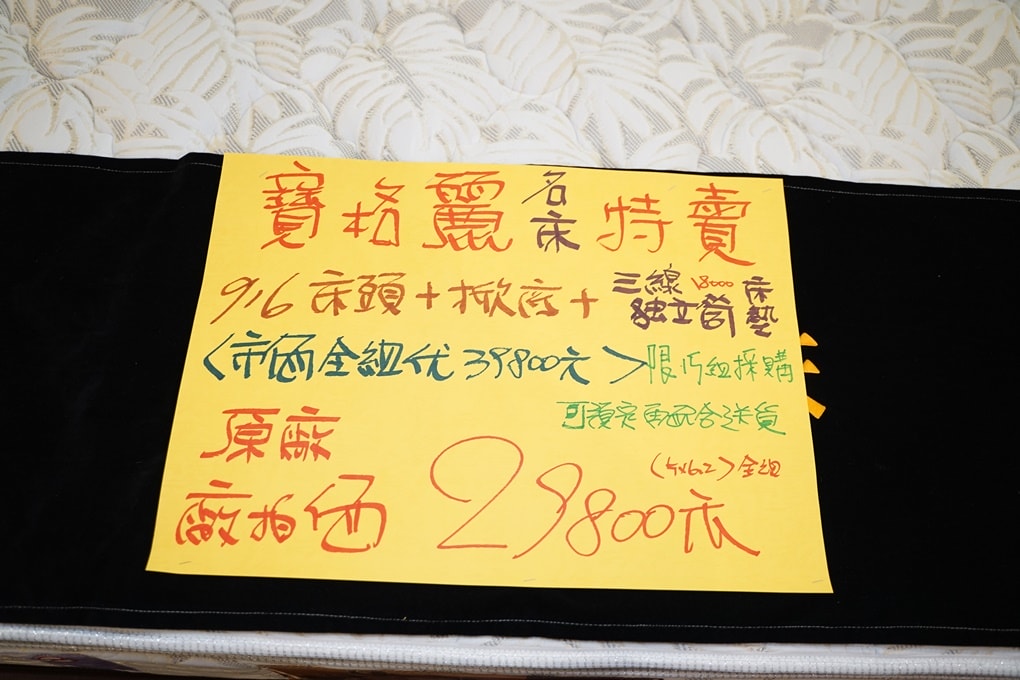 寶格麗名床特賣
916床頭+掀床+三線18000獨立筒床墊
<市価全組代39800元>限15組採購
可預定再配合送貨
原廠
(5x6.2)全組
廠拍価29800元